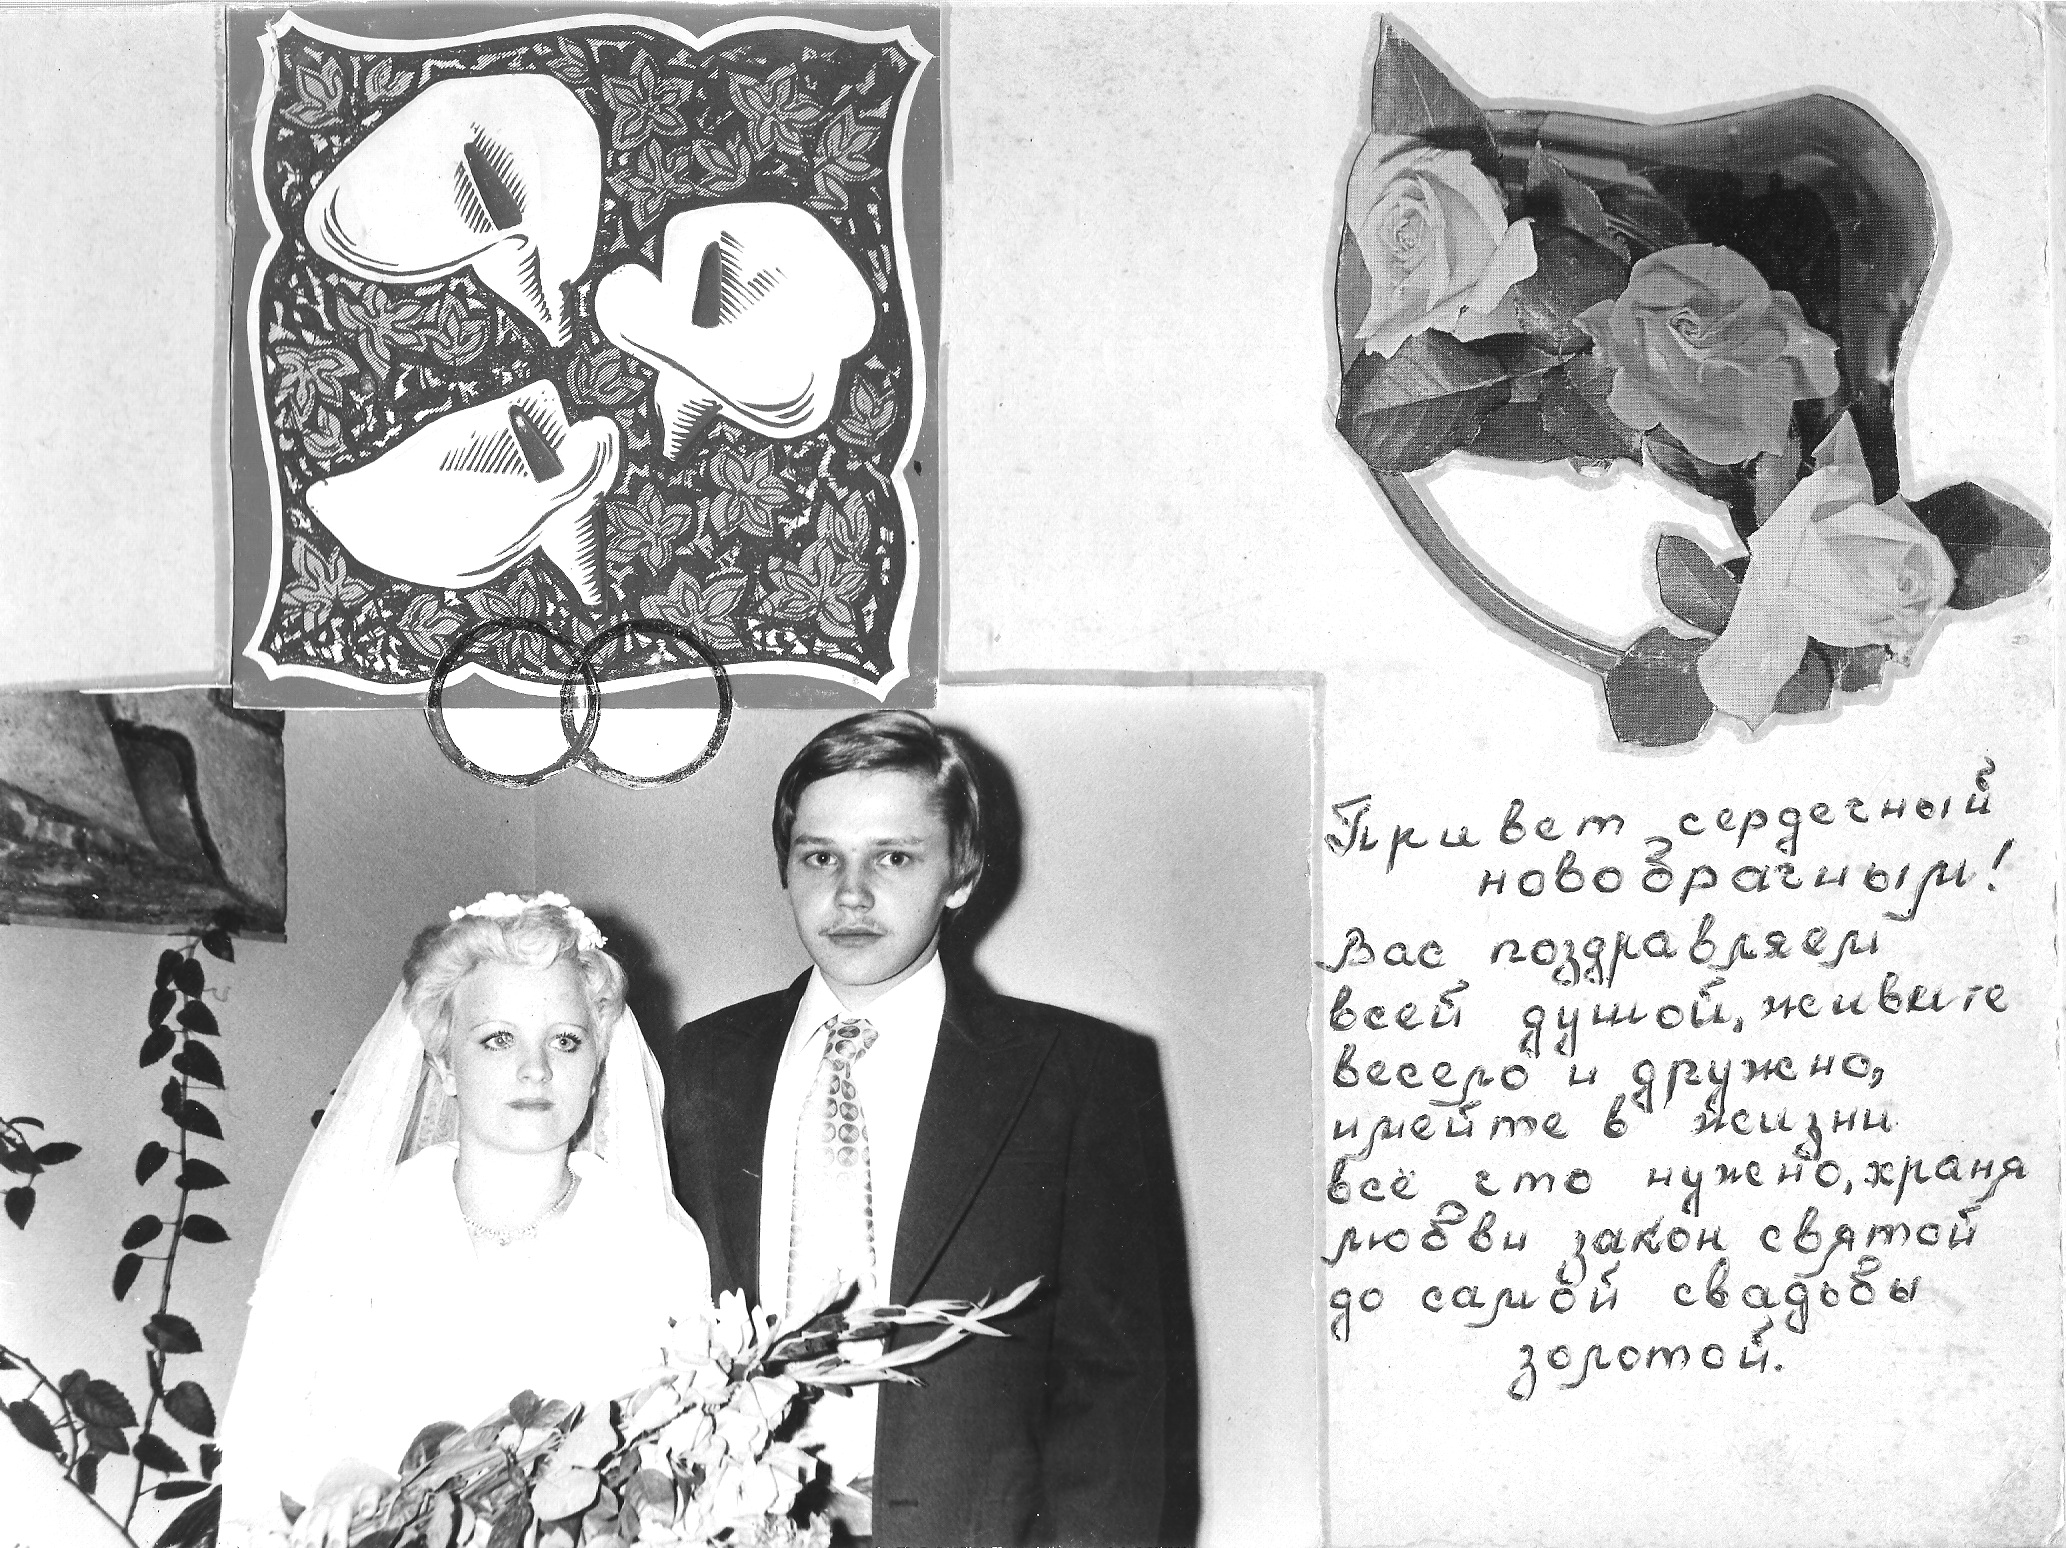 Привет сердечный
новобрачным!
Вас поздравляем
всей душой, живите
весело и дружно,
имейте в жизни
всё что нужно, храня
любви закон святой
до самой свадьбы
золотой.